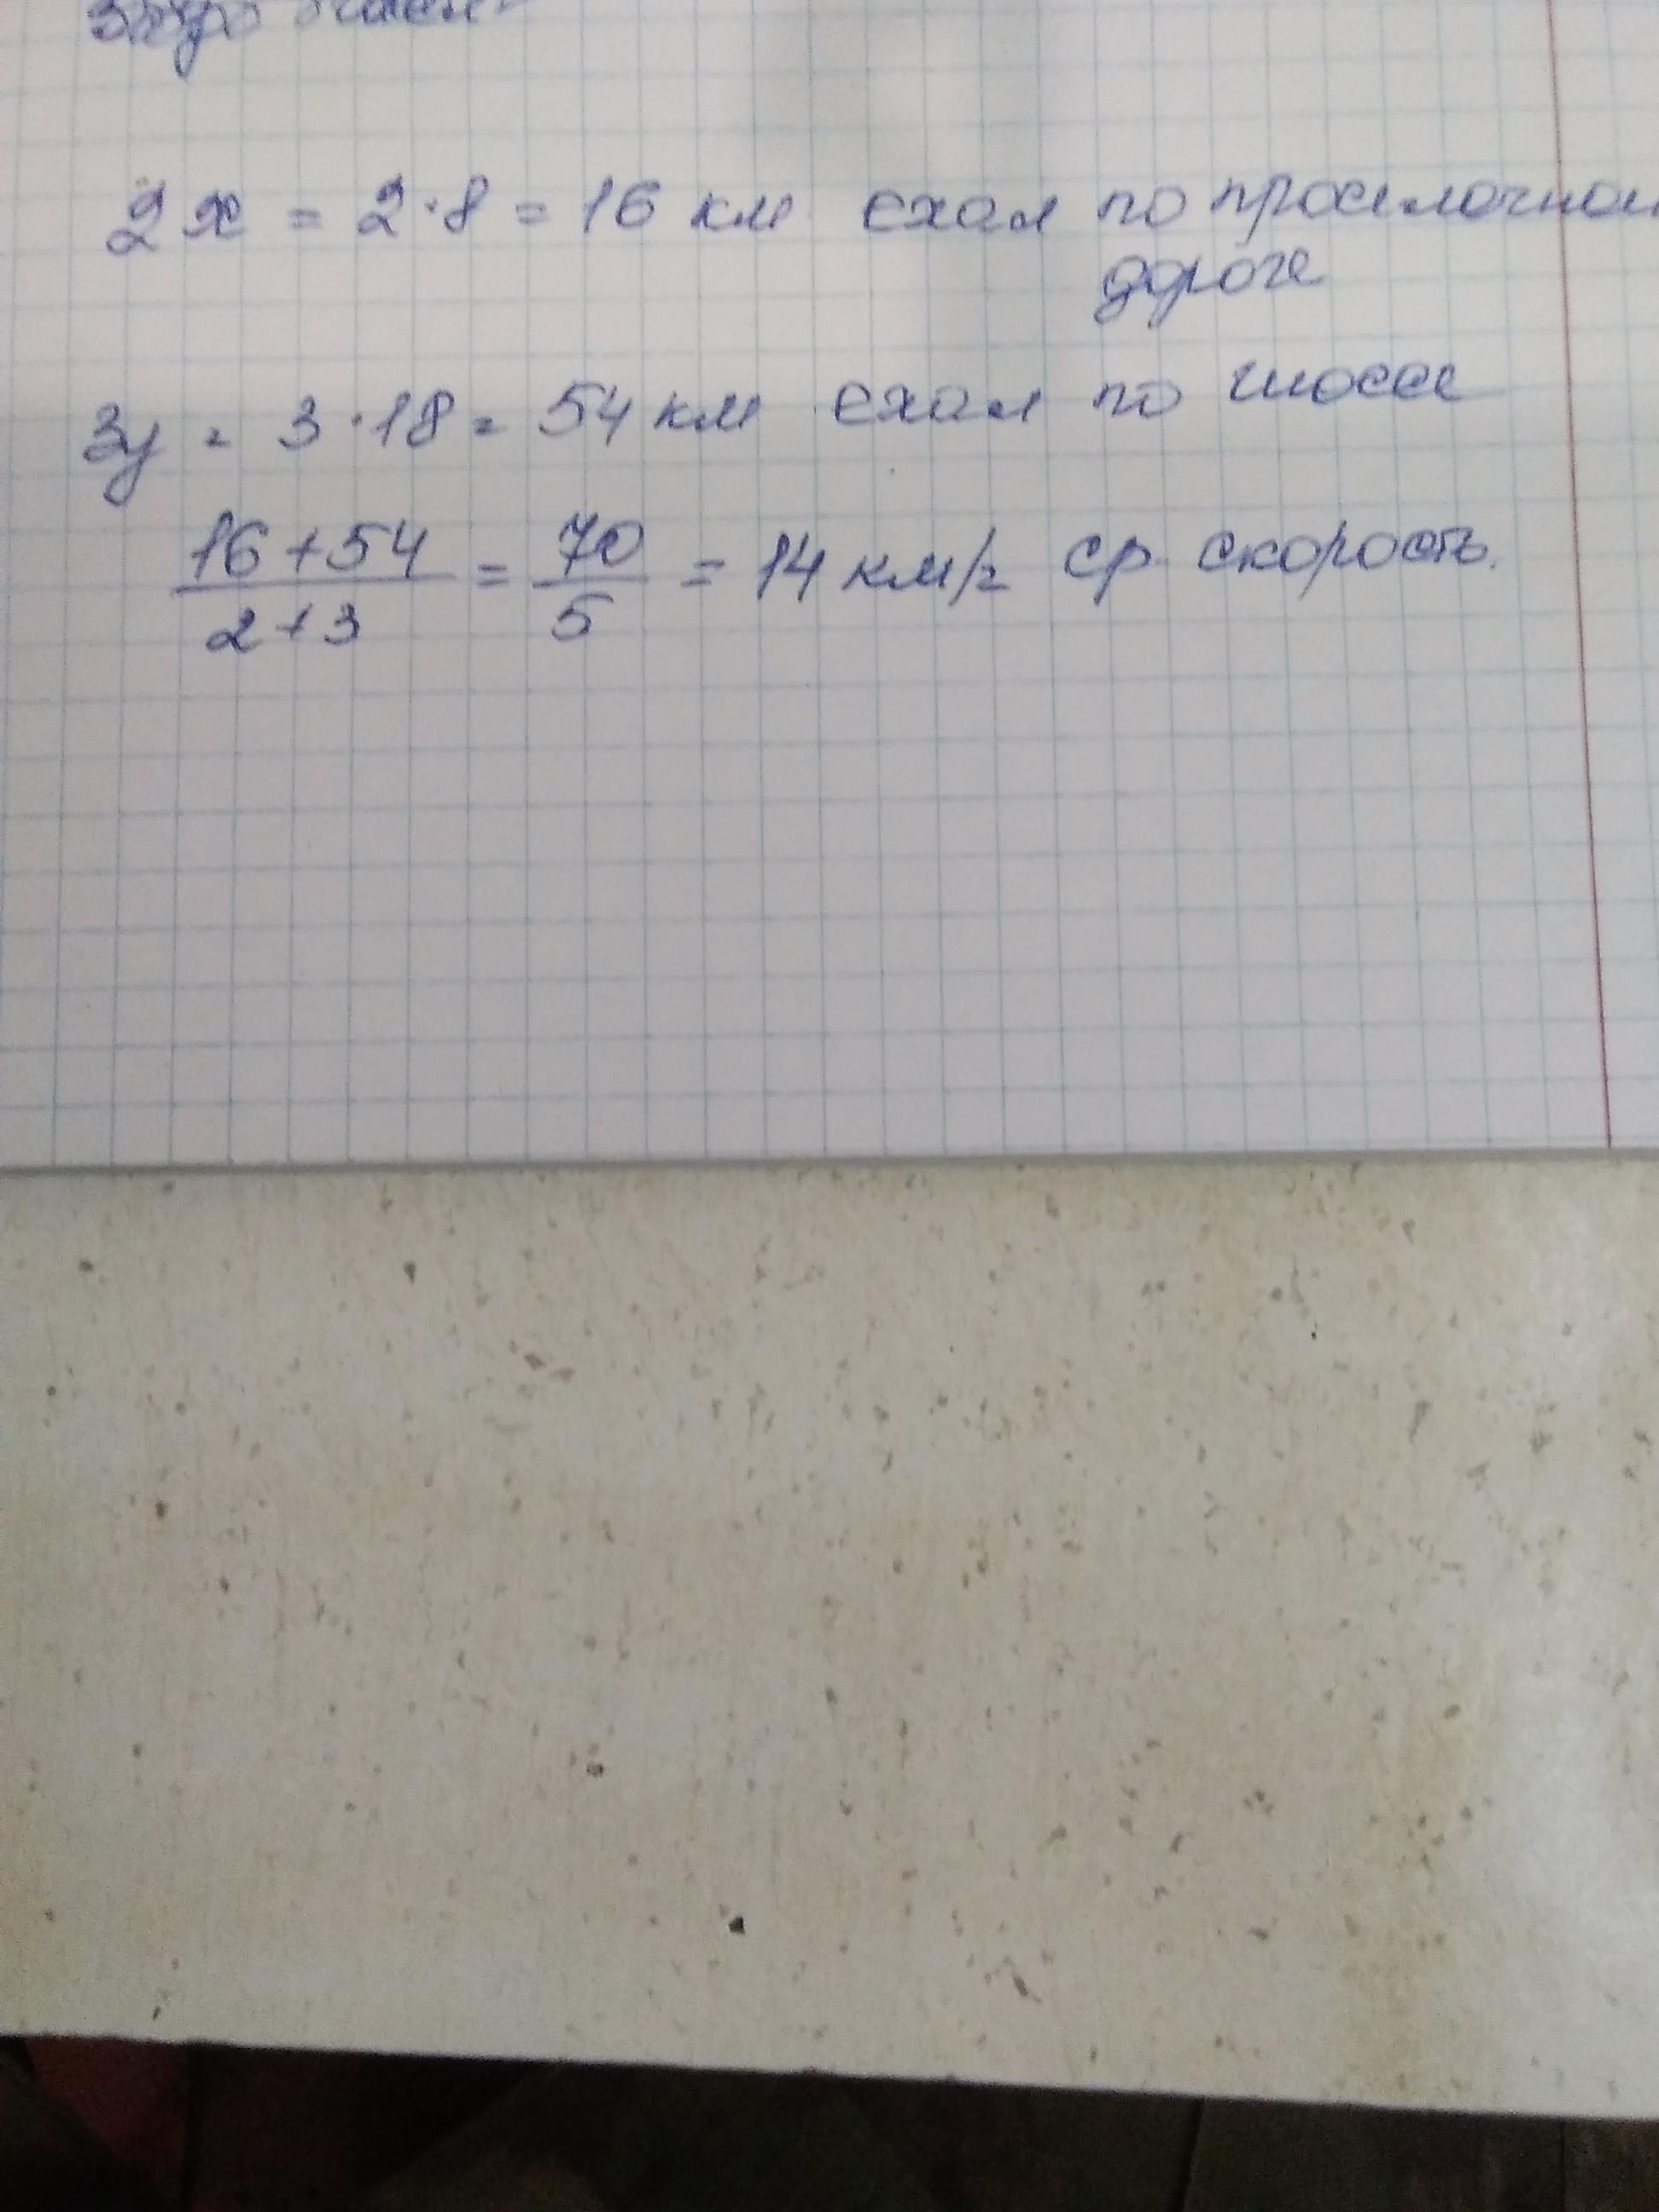 2x = 2·8 = 16 км ехал по проселочной
дороге
3y = 3·18 = 54 км ехал по шоссе
16+54/2+3 = 70/5 = 14 км/ч ср. скорость.